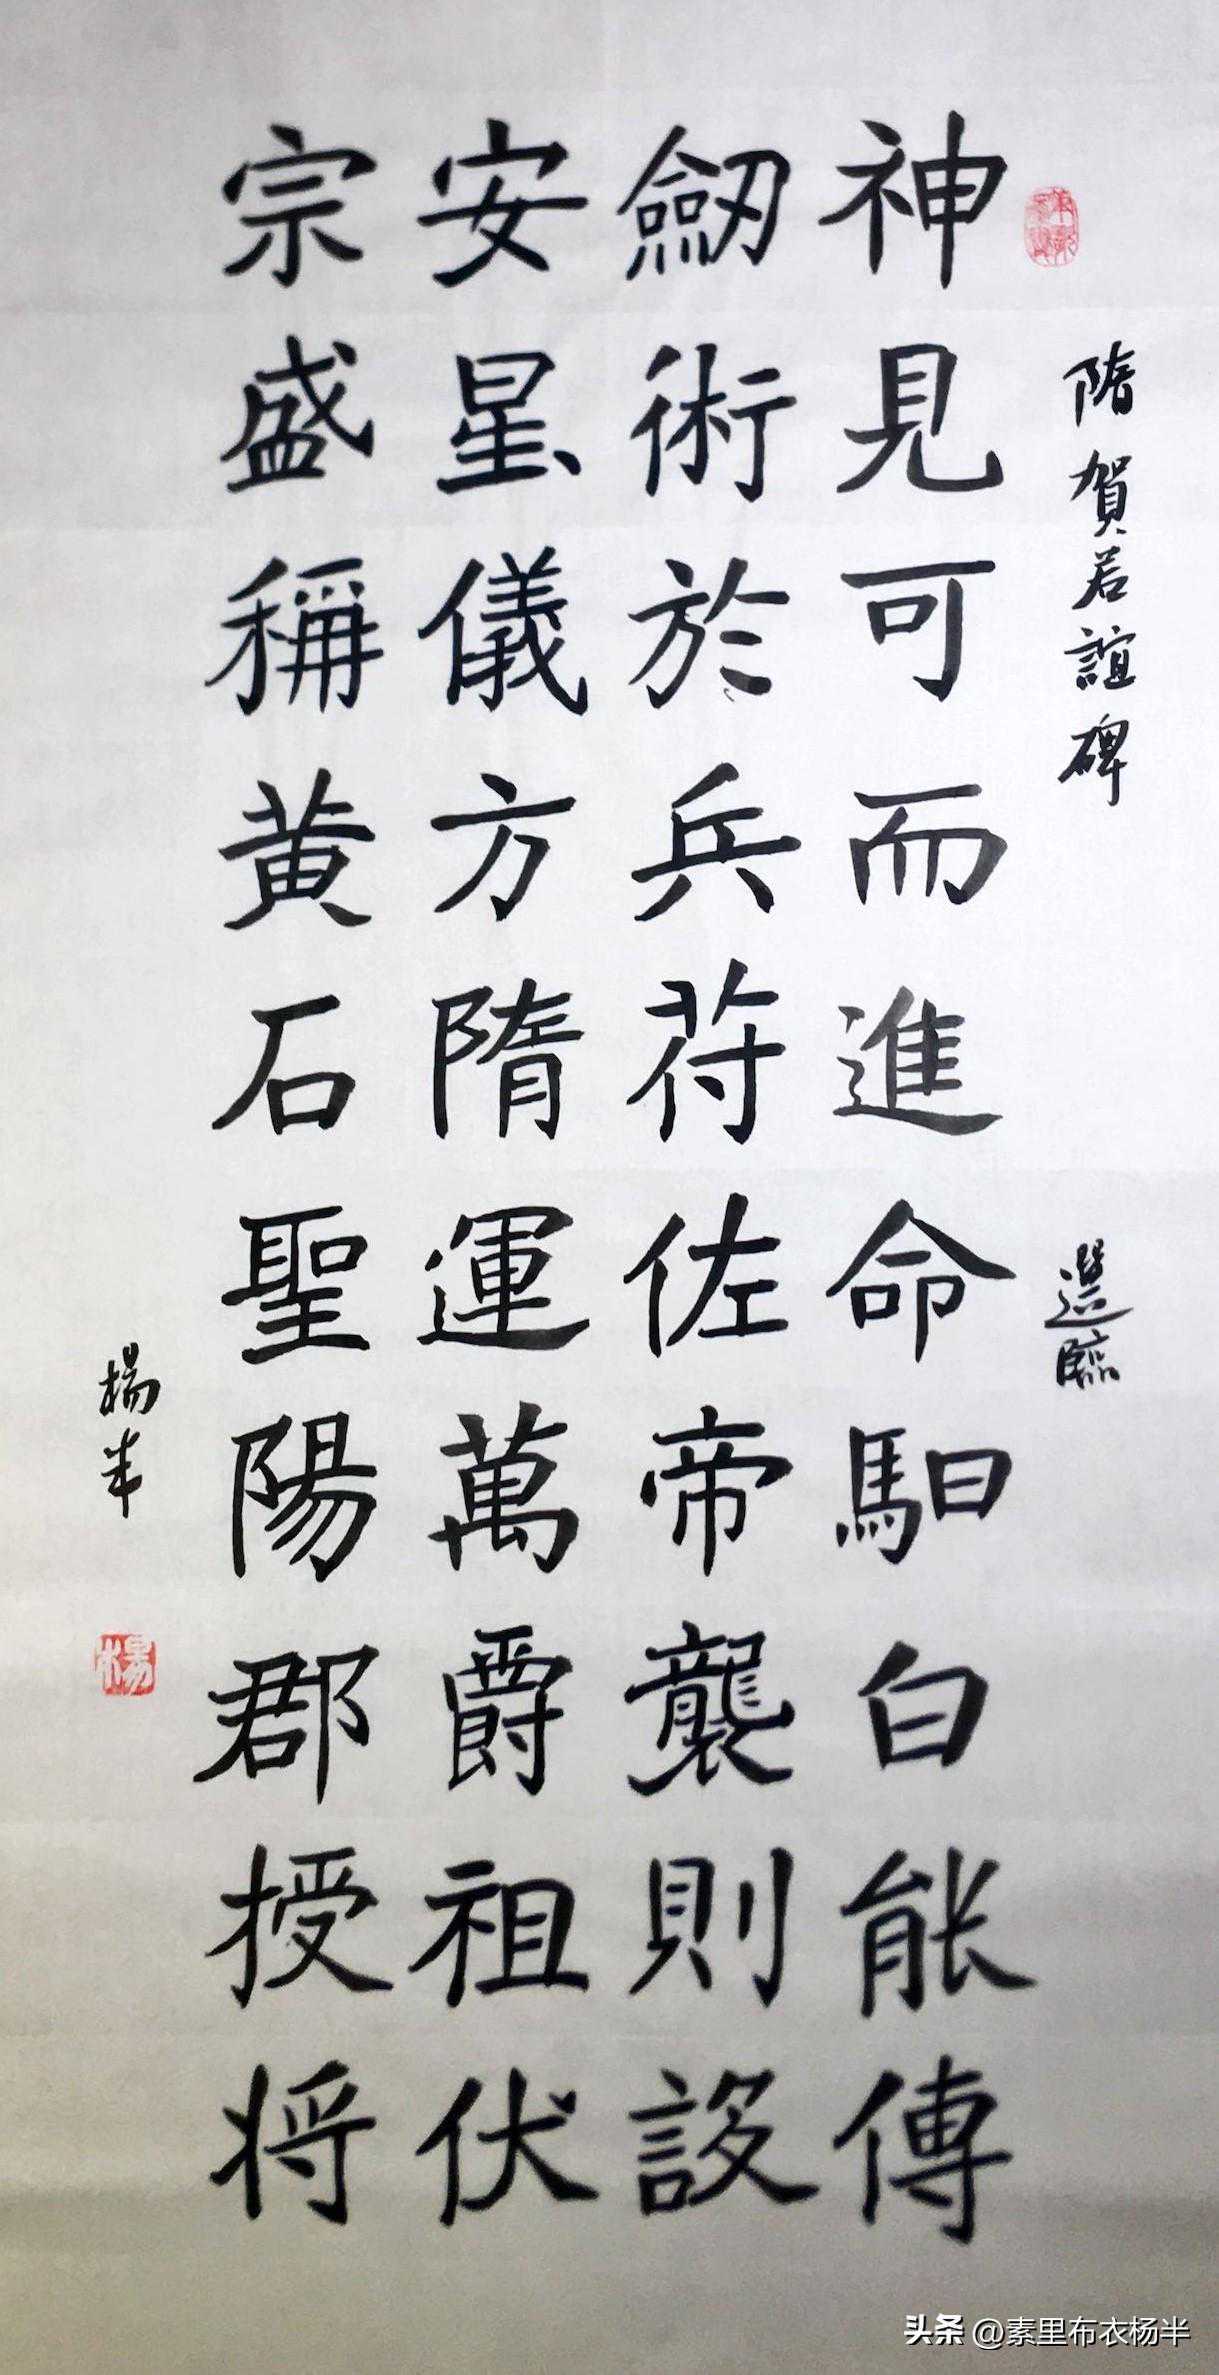 隋賀若誼碑 選臨
神見可而進命馹白能傳
劒術於兵苻佐帝襲則設
安星儀方隋運萬爵祖伏
宗盛稱黄石聖陽郡授将
楊半
楊
头条 @素里布衣杨半